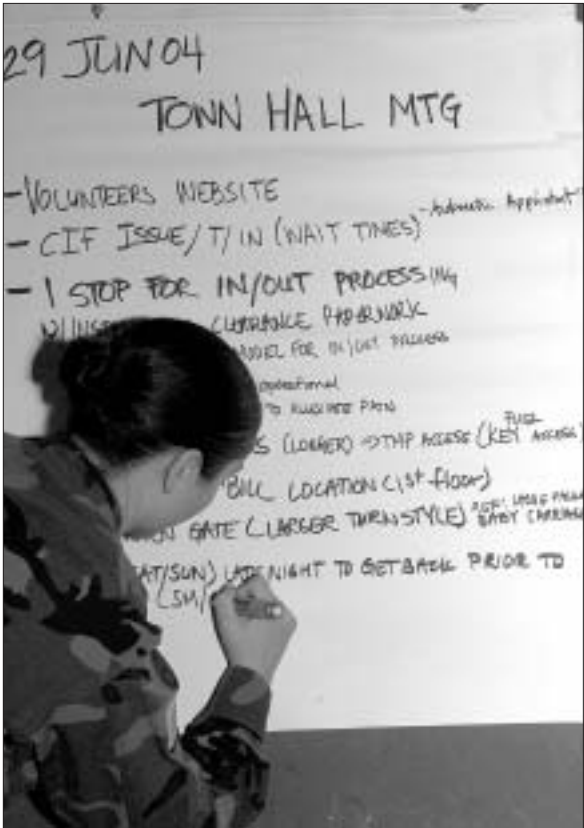 29 JUN 04
TOWN HALL MTG
- VOLUNTEERS WEBSITE
- CIF ISSUE/T/IN (WAIT TIMES) - Automatic
- 1 STOP FOR IN/OUT PROCESSING
CLEARANCE PAPERWORK
MODEL FOR IN/OUT PROCESS
operational
TO PAIN
S (LONGER) → TMP ACCESS (KEY FUEL ACCESS)
BILL LOCATION (1st floor)
GATE (LARGER TURNSTYLE) BABY CARRIAGE
SAT/SUN) LATE NIGHT TO GET BACK PRIOR TO
(SM/